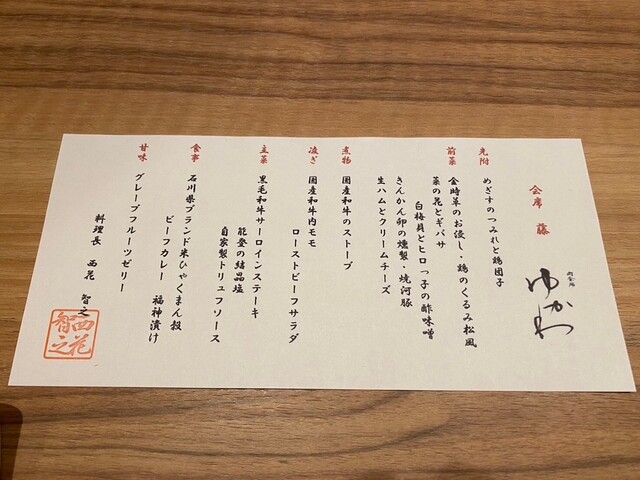 肉會席
ゆかわ
会席 藤
先附 めぎすのつみれと鶏団子
前菜 金時草のお浸し・鶏のくるみ松風
菜の花とギバサ
白梅貝とヒロっ子の酢味噌
きんかん卵の燻製・焼河豚
生ハムとクリームチーズ
煮物 国産和牛のストーブ
凌ぎ 国産和牛内モモ
ローストビーフサラダ
主菜 黒毛和牛サーロインステーキ
能登の結晶塩
自家製トリュフソース
食事 石川県ブランド米ひゃくまん穀
ビーフカレー 福神漬け
甘味 グレープフルーツゼリー
料理長 西花 智之
西花
智之